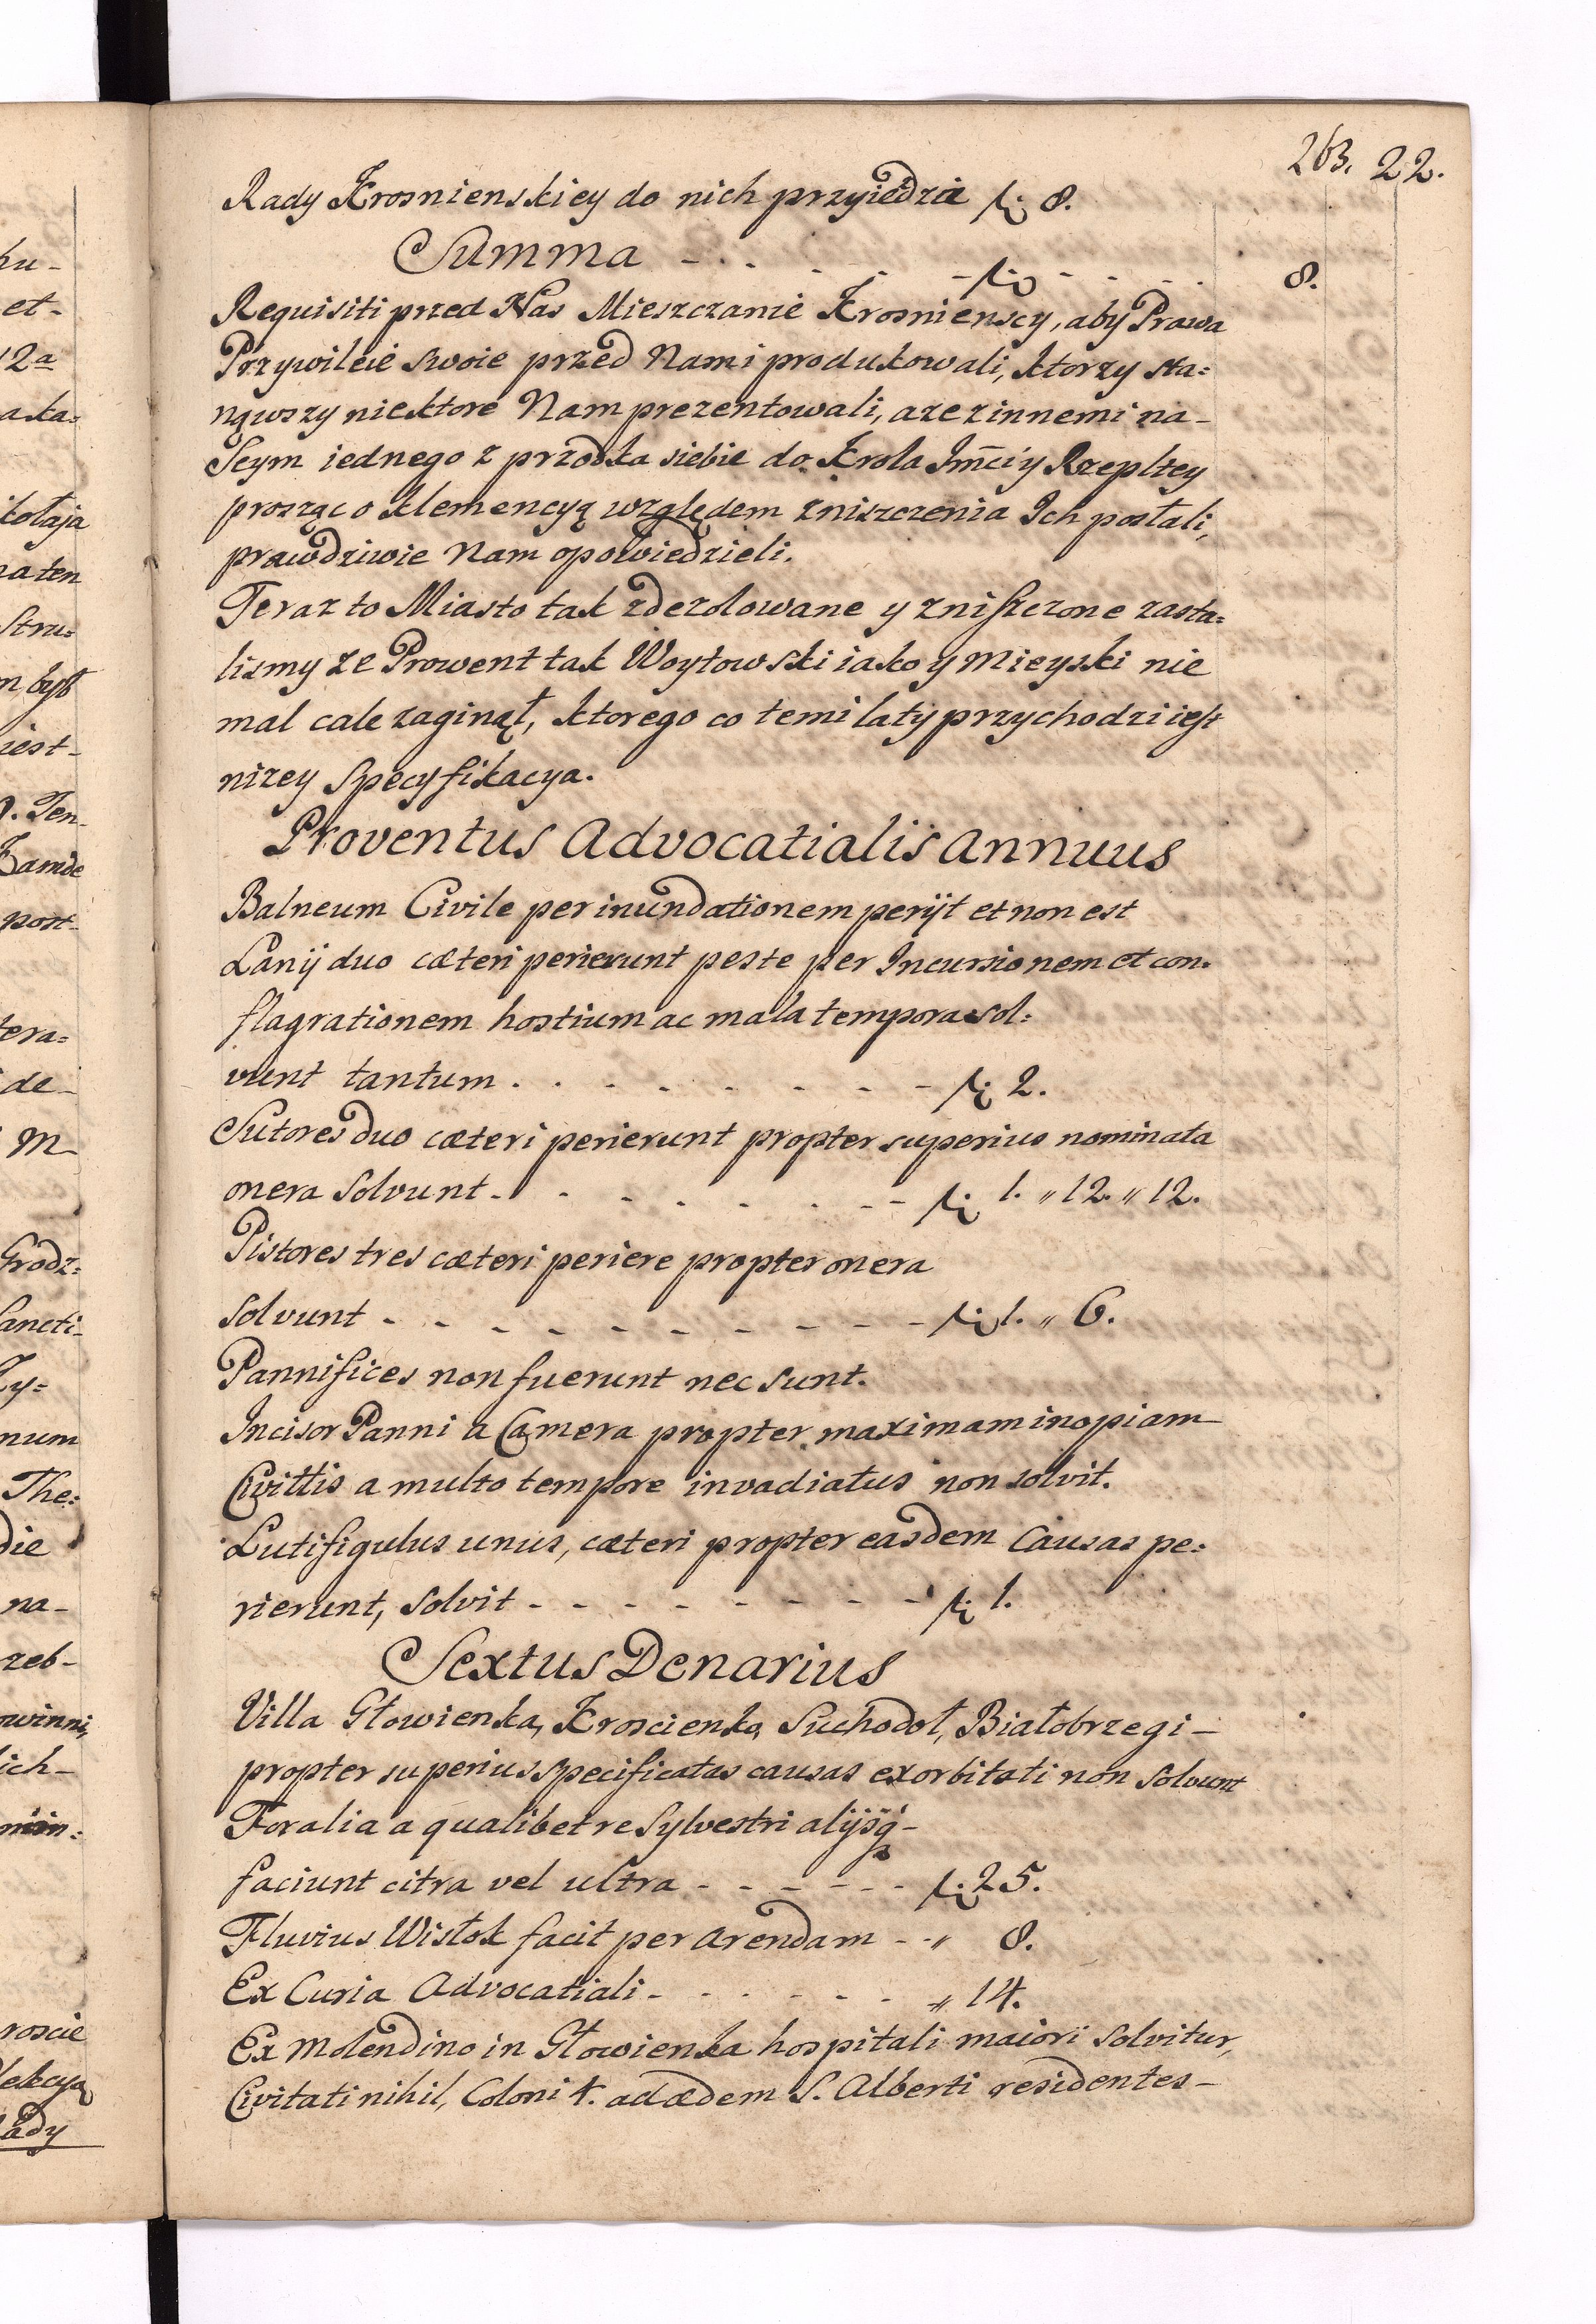 263. 22.
Rady Krosnienskiey do nich przyiedzie fl: 8.
Summa - . . - - - fl: - - . . 8.
Requisiti przed Nas Mieszczanie Krosnienscy, aby Prawa
Przywileie swoie przed Nami produkowali, ktorzy sta=
nąwszy niektore Nam prezentowali, a ze z innemi na-
Seym iednego z przodka siebie do Krola Jm̃ci y Rzepltey
prosząc o klemencyą względem zniszczenia Ich posłali,
prawdziwie Nam opowiedzieli.
Teraz to Miasto tak zdezolowane y zniszczone zasta=
lismy ze Prowent tak Woytowski iako y Mieyski nie
mal cale zaginął, ktorego co temi laty przychodzi iest
nizey Specyfikacya.
Proventus Advocatialis Annuus
Balneum Civile per inundationem perijt et non est
Lanij duo cæteri perierunt peste per Incursionem et con-
flagrationem hostium ac mala tempora sol:
vunt tantum . . . - - - - - fl: 2.
Sutores duo cæteri perierunt propter superius nominata
onera Solvunt - . - - - - - - fl: 1. " 12. " 12.
Pistores tres cæteri periere propter onera
Solvunt - - - - - - - - - - fl: 1. " 6.
Pannifices non fuerunt nec sunt.
Incisor Panni a Camera propter maximam inopiam
Civittis a multo tempore invadiatus non solvit.
Lutifigulus unus, cæteri propter easdem Causas pe:
rierunt, Solvit - - - - - - - - fl: 1.
Sextus Denarius
Villa Głowienka, Kroscienko, Suchodoł, Białobrzegi -
propter superius specificatas causas exorbitati non Solvunt
Foralia a qualibet re Sylvestri alijsq̃-
faciunt citra vel ultra - - - - - - fl: 25.
Fluvius Wisłok facit per Arendam - - " 8.
Ex Curia Advocatiali - - - - - - " 14.
Ex Molendino in Głowienka hospitali maiori Solvitur,
Civitati nihil, Coloni 4. ad ædem S. Alberti residentes -